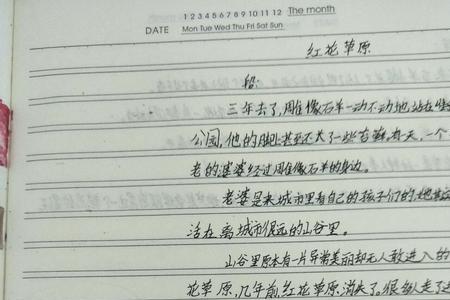 1 2 3 4 5 6 7 8 9 10 11 12 The month
DATE Mon Tue Wed Thu Fri Sat Sun
红花草原
三年去了,周佳像石羊一动不动地,站在
公园,他的脚上甚至还长了一些青藓。有一天,一个
老的婆婆经过周佳像石羊的身边。
老婆是来城市里看自己的孩子们的,她
活在离城市很远的山谷里。
山谷里原本有一片异常美丽却无人敢进入的
花草原,几年前,红花草原消失了。很多人走了进